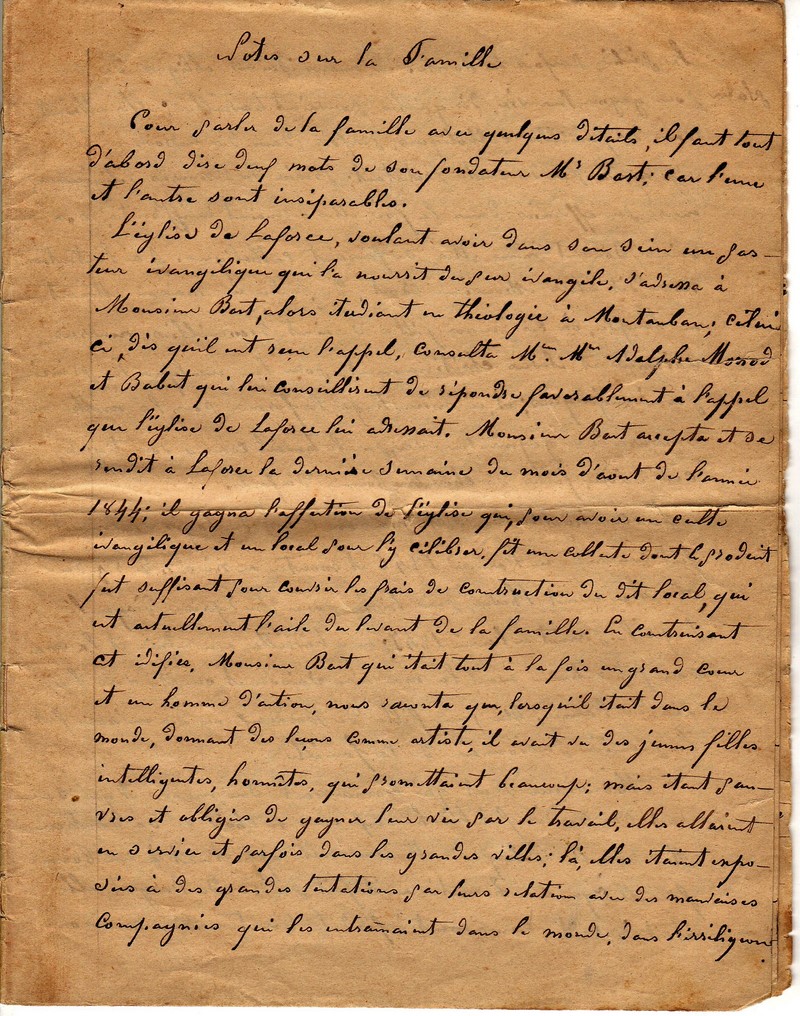 Notes sur la Famille
Pour parler de la famille avec quelques détails, il faut tout
d'abord dire deux mots de son fondateur Mr Bost; car l'une
et l'autre sont inséparables.
L'église de Laforce, voulant avoir dans son sein un pas-
teur évangélique qui la nourrit du pur évangile, s'adressa à
Monsieur Bost, alors étudiant en théologie à Montauban; celui
ci, dès qu'il eut reçu l'appel, consulta Mrs. Mrs Adolphe Monod
et Babut qui lui conseillèrent de répondre favorablement à l'appel
que l'église de Laforce lui adressait. Monsieur Bost accepta et se
rendit à Laforce la dernière semaine du mois d'aout de l'année
1844; il gagna l'affection de l'église qui, pour avoir un culte
évangélique et un local pour l'y célébrer, fit une collecte dont le produit
fut suffisant pour couvrir les frais de construction du dit local, qui
est actuellement l'aile du levant de la famille. En construisant
cet édifice, Monsieur Bost qui était tout à la fois un grand coeur
et un homme d'action, nous raconta que, lorsqu'il était dans le
monde, donnant des leçons comme artiste, il avait vu des jeunes filles
intelligentes, honnêtes, qui promettaient beaucoup; mais étant pau-
vres et obligées de gagner leur vie par le travail, elles allaient
en service et parfois dans les grandes villes; là, elles étaient expo-
sées à des grandes tentations par leurs relation avec des mauvaises
compagnies qui les entraînaient dans le monde, dans l'irréligion